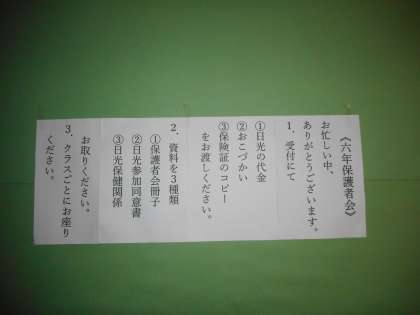 《六年保護者会》
お忙しい中、
ありがとうございます。
1．受付にて
①日光の代金
②おこづかい
③保険証のコピー
をお渡しください。
2．資料を3種類
①保護者会冊子
②日光参加同意書
③日光保健関係
お取りください。
3．クラスごとにお座り
ください。